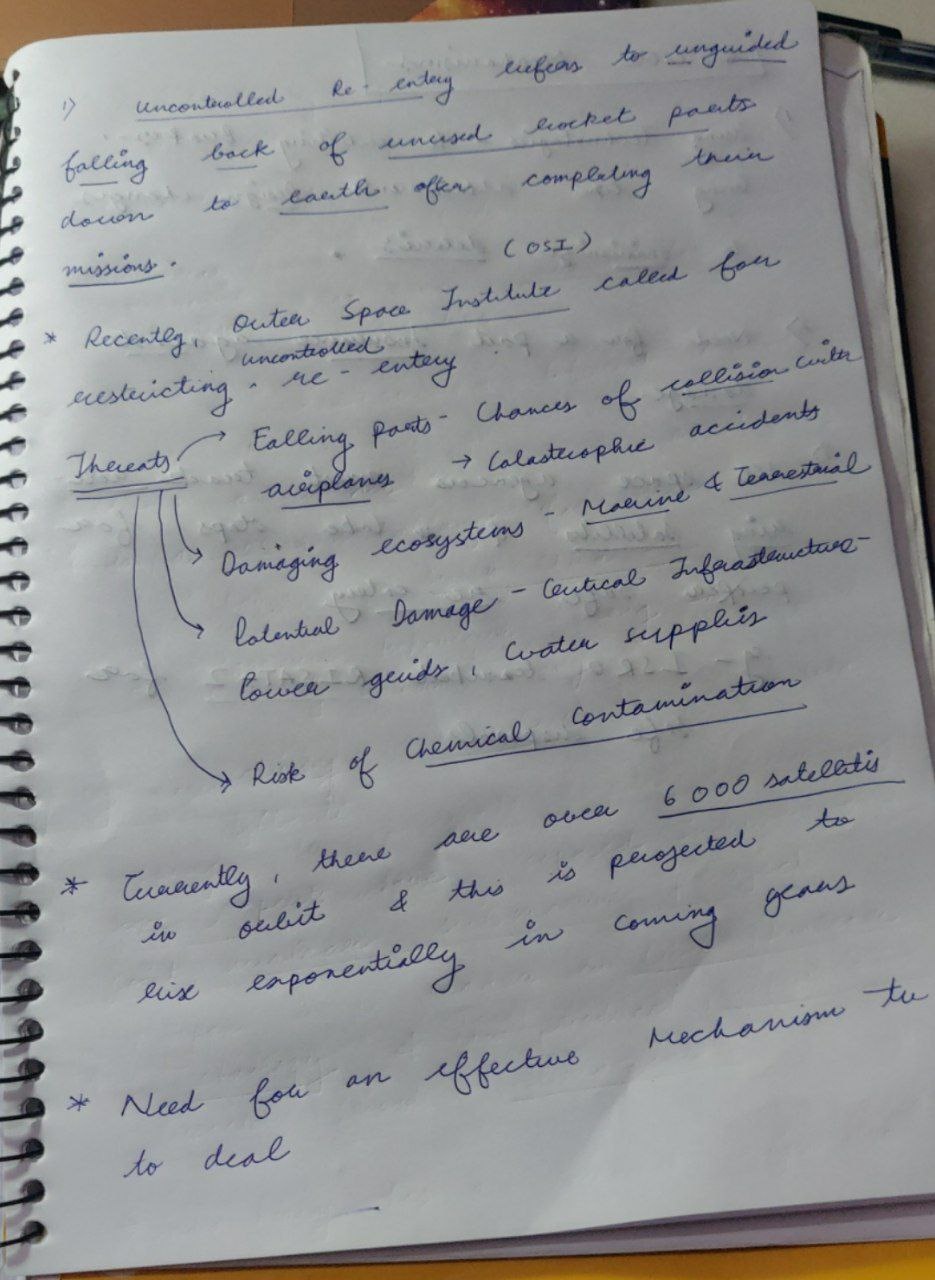 1) Uncontrolled Re-entry refers to unguided
falling back of unused rocket parts
down to earth after completing their
missions.
(OSI)
* Recently, Outer Space Institute called for
uncontrolled
restricting re-entry
Threats → Falling parts - Chances of collision with
airplanes → Catastrophic accidents
→ Damaging ecosystems - Marine & Terrestrial
→ Potential Damage - Critical Infrastructure -
Power grids, Water supplies
→ Risk of Chemical Contamination
* Currently, there are over 6000 satellites
in orbit & this is projected to
rise exponentially in coming years
* Need for an effective Mechanism to
to deal